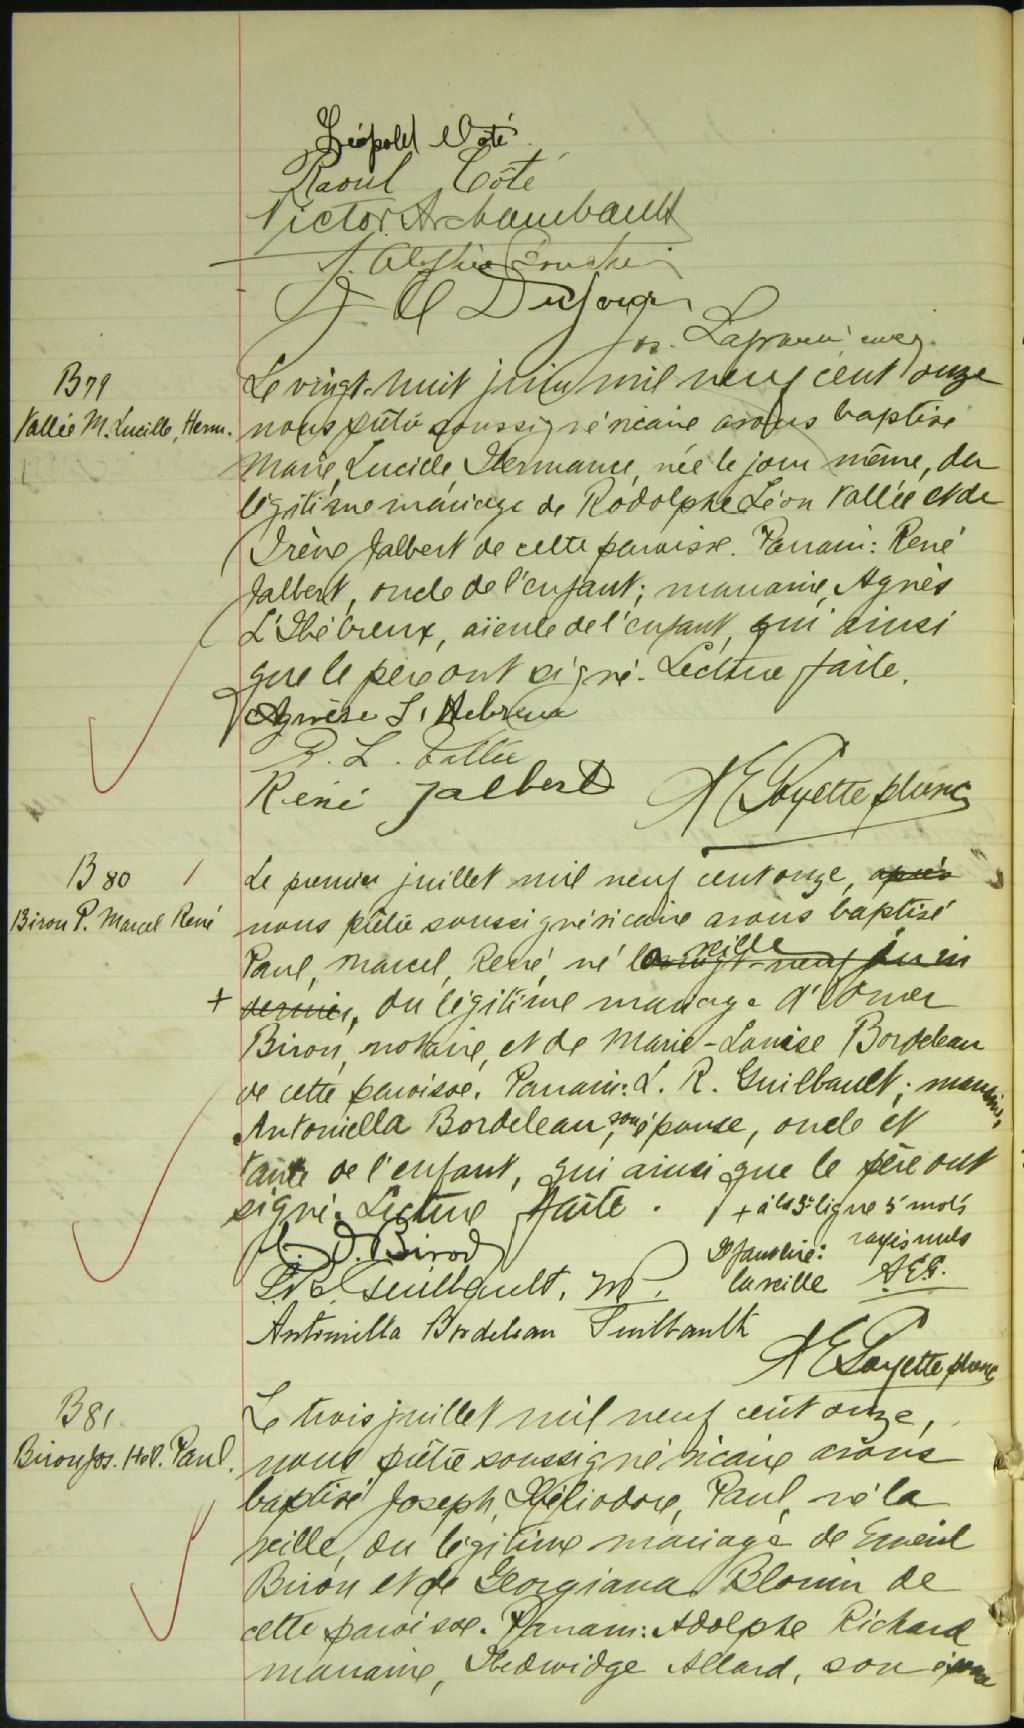 Léopold Côté
Raoul Côté
Victor Archambault
J.
Jos.
B79
Vallée M. Lucille, Herm.
Le vingt-huit juin mil neuf cent onze
nous prêtre soussigné vicaire avons baptisé
Marie, Lucille Hermance, née le jour même, du
légitime mariage de Rodolphe Léon Vallée et de
Irène Jalbert de cette paroisse. Parrain: René
Jalbert, oncle de l'enfant; marraine, Agnès
L'Hébreux, aïeule de l'enfant, qui ainsi
que le père ont signé. Lecture faite.
Agnèse L'Hebreux
R. L. Vallée
René Jalbert
A E Payette ptre vic
B 80
Biron P. Marcel René
Le premier juillet mil neuf cent onze, après
nous prêtre soussigné vicaire avons baptisé
Paul, Marcel, René, né le vingt-neuf juin
veille
+ dernier, du légitime mariage d'Omer
Biron, notaire, et de Marie-Louise Bordeleau
de cette paroisse. Parrain: L. R. Guilbault; marraine,
Antoniella Bordeleau, son épouse, oncle et
tante de l'enfant, qui ainsi que le père ont
signé. Lecture faite.
+ à la 3e ligne 5 mots
rayés nuls
Il faut lire:
la veille A.E.P.
O. Biron
L. R. Guilbault,
Antonilla Bordeleau Guilbault
A E Payette ptre vic
B 81
Biron Jos. Hel. Paul.
Le trois juillet mil neuf cent onze,
nous prêtre soussigné vicaire avons
baptisé Joseph, Héliodore, Paul, né la
veille, du légitime mariage de
Biron et de Georgiana Blouin de
cette paroisse. Parrain: Adolphe Richard
marraine, Hedwidge Allard, son épouse